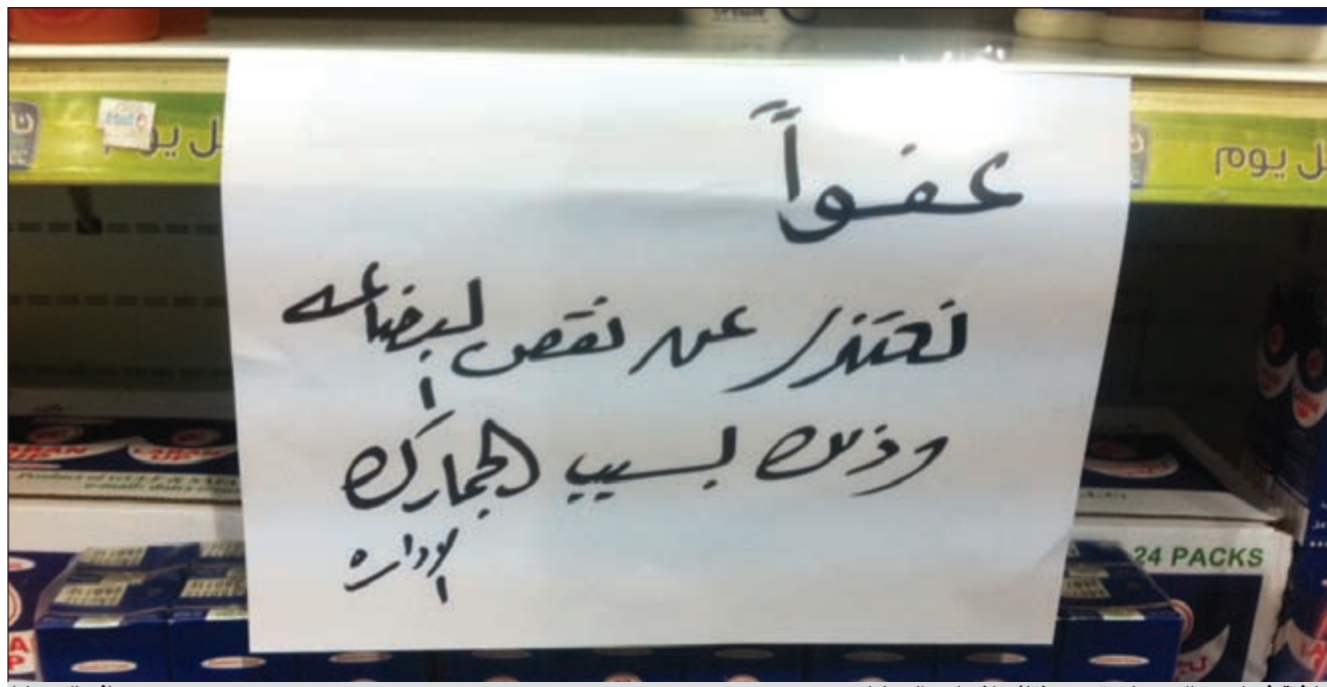 عفواً
نعتذر عن نقص البضاعه
وذلك بسبب الجمارك
الاداره
ل يوم
ل يو
24 PACKS